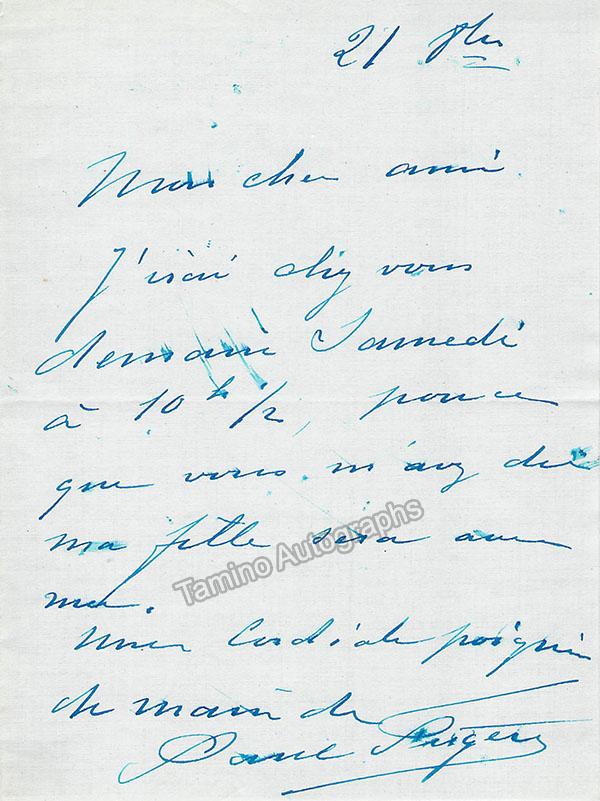 21 8bre
Mon cher ami
J'irai chez vous
demain Samedi
à 10 h 1/2, pour ce
que vous m'avez dit
ma fille sera avec
moi.
Une cordiale poignée
de main de
Paul
Tamino Autographs